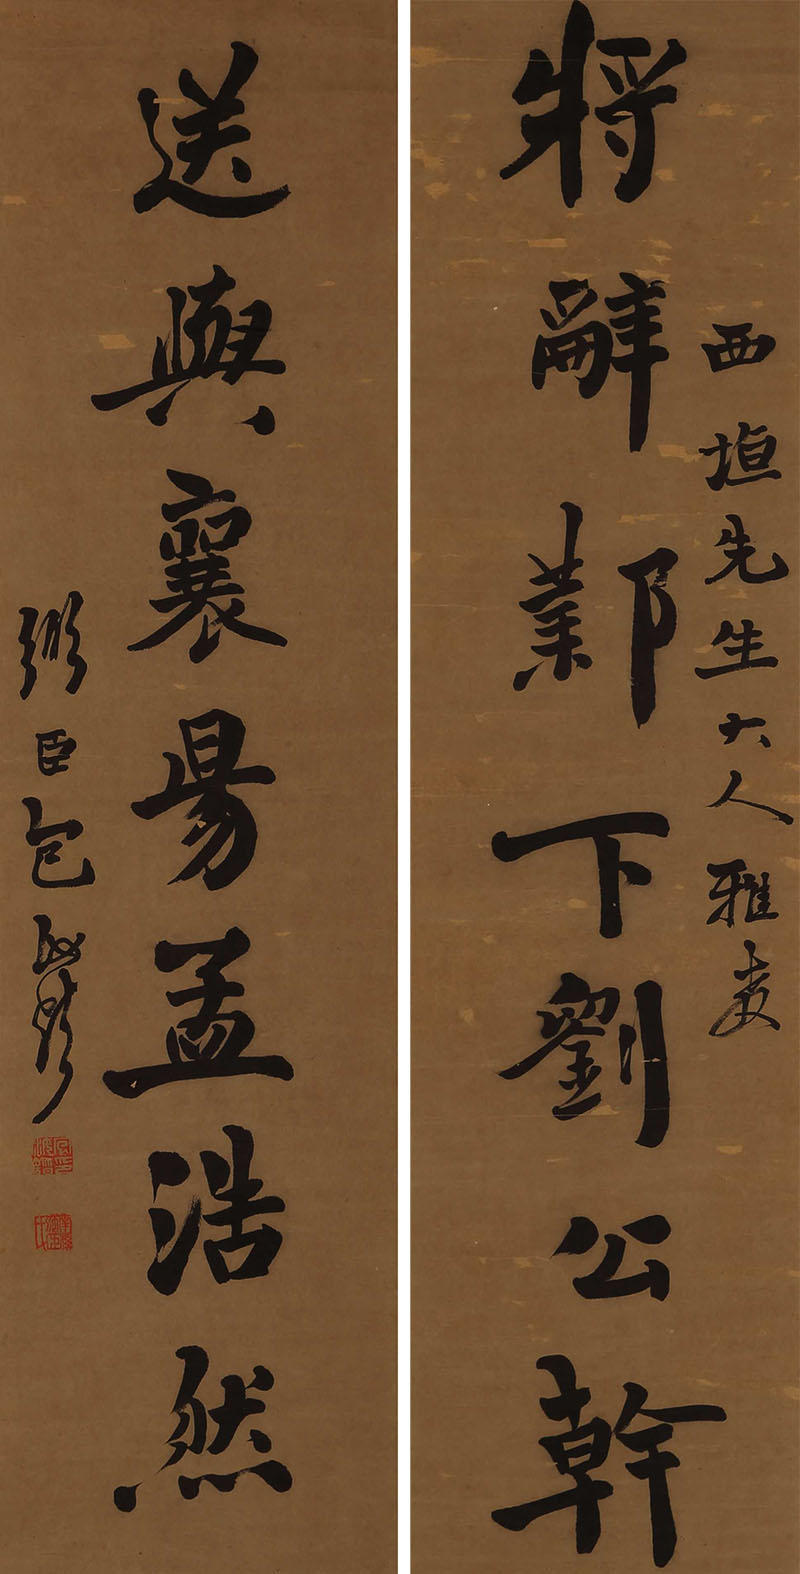 將辭鄴下劉公幹
西垣先生大人雅
送與襄昜孟浩然
臣包